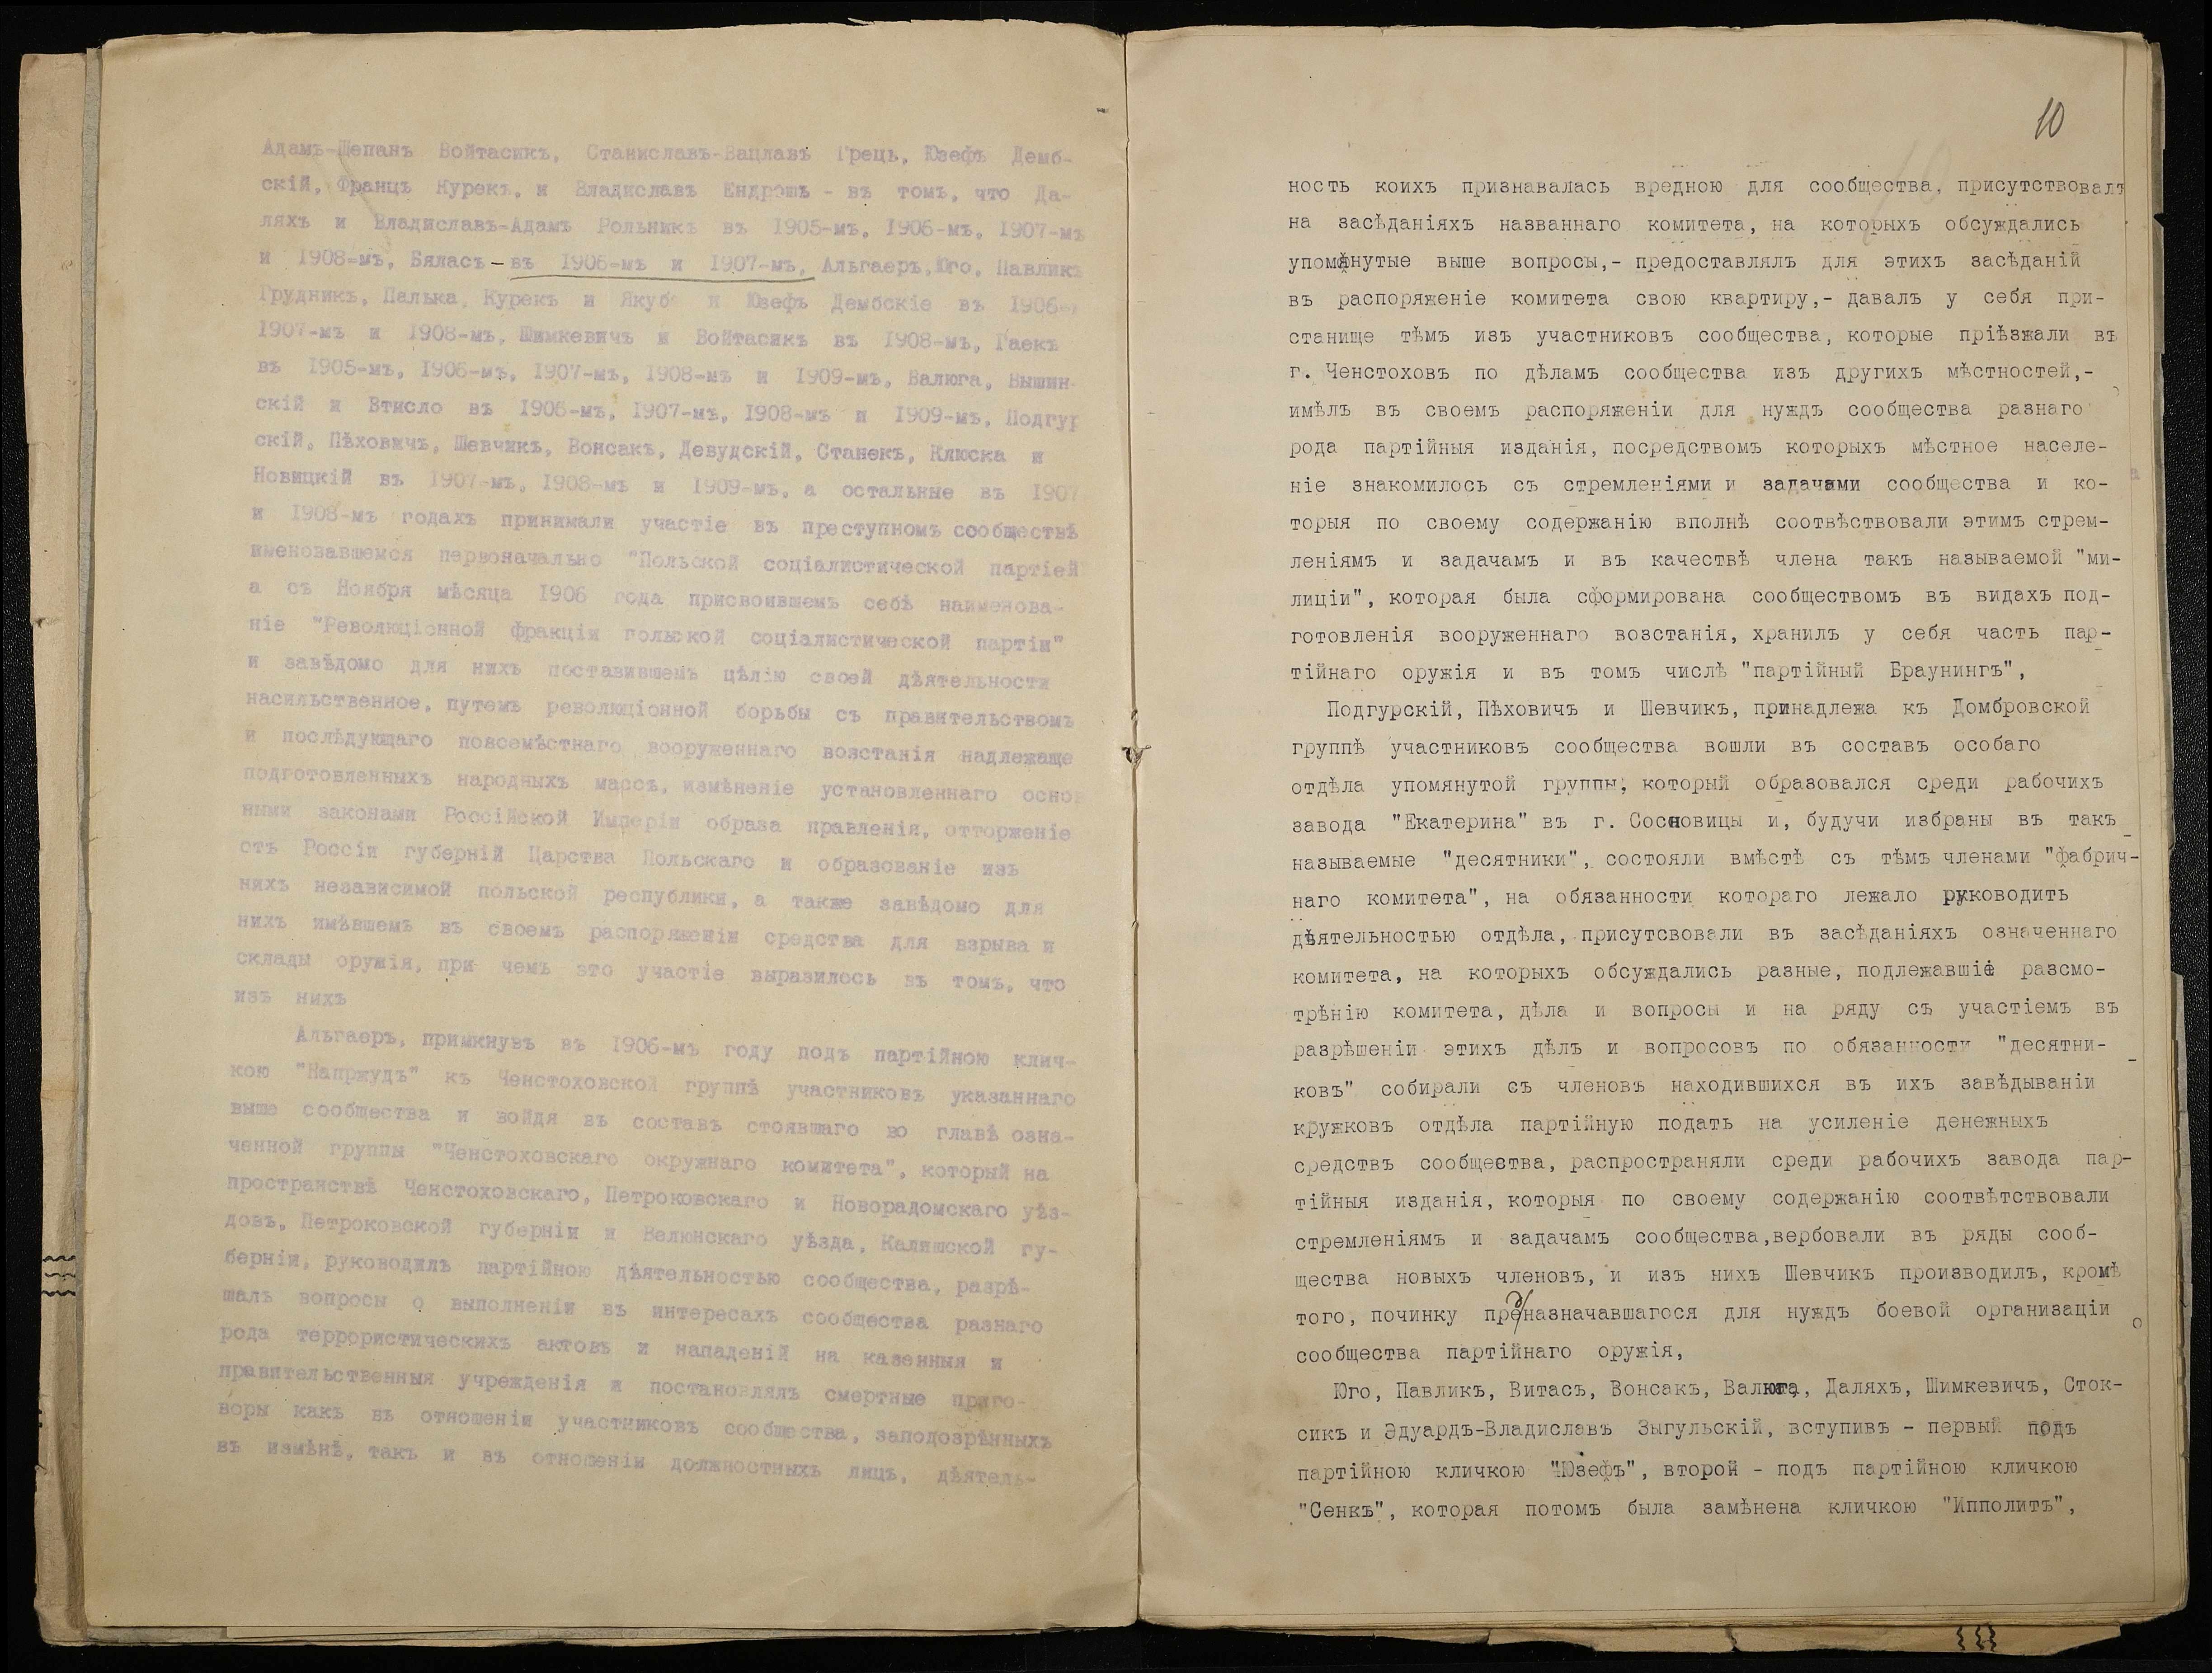 Адамъ-Щепанъ Войтасикъ, Станиславъ-Вацлавъ Грецъ, Юзефъ Демб-
скій, Францъ Курекъ, и Владиславъ Ендрошъ - въ томъ, что Да-
ляхъ и Владиславъ-Адамъ Рольникъ въ 1905-мъ, 1906-мъ, 1907-мъ
и 1908-мъ, Бяласъ - въ 1906-мъ и 1907-мъ, Альгаеръ, Юго, Павликъ
Грудникъ, Палька, Курекъ и Якубъ и Юзефъ Дембскіе въ 1906-
1907-мъ и 1908-мъ, Шимкевичъ и Войтасикъ въ 1908-мъ, Гаекъ
въ 1905-мъ, 1906-мъ, 1907-мъ, 1908-мъ и 1909-мъ, Валюга, Вышин-
скій и Втисло въ 1906-мъ, 1907-мъ, 1908-мъ и 1909-мъ, Подгур
скій, Пѣховичъ, Шевчикъ, Вонсакъ, Девудскій, Станекъ, Клюска и
Новицкій въ 1907-мъ, 1908-мъ и 1909-мъ, а остальные въ 1907
и 1908-мъ годахъ принимали участіе въ преступномъ сообществѣ
именовавшемся первоначально "Польской соціалистической партіей"
а съ Ноября мѣсяца 1906 года присвоившемъ себѣ наименова-
ніе "Революціонной фракціи польской соціалистической партіи"
и завѣдомо для нихъ поставившемъ цѣлію своей дѣятельности
насильственное, путемъ революціонной борьбы съ правительствомъ
и послѣдующаго повсемѣстнаго вооруженнаго возстанія надлежаще
подготовленныхъ народныхъ массъ, измѣненіе установленнаго основ
ными законами Россійской Имперіи образа правленія, отторженіе
отъ Россіи губерній Царства Польскаго и образованіе изъ
нихъ независимой польской республики, а также завѣдомо для
нихъ имѣвшемъ въ своемъ распоряженіи средства для взрыва и
склады оружія, при чемъ это участіе выразилось въ томъ, что
изъ нихъ
Альгаеръ, примкнувъ въ 1906-мъ году подъ партійною клич-
кою "Напржудъ" къ Ченстоховской группѣ участниковъ указаннаго
выше сообщества и войдя въ составъ стоявшаго во главѣ озна-
ченной группы "Ченстоховскаго окружнаго комитета", который на
пространствѣ Ченстоховскаго, Петроковскаго и Новорадомскаго уѣз-
довъ, Петроковской губерніи и Велюнскаго уѣзда, Калишской гу-
берніи, руководилъ партійною дѣятельностью сообщества, разрѣ-
шалъ вопросы о выполненіи въ интересахъ сообщества разнаго
рода террористическихъ актовъ и нападеній на казенныя и
правительственныя учрежденія и постановлялъ смертные приго-
воры какъ въ отношеніи участниковъ сообщества, заподозрѣнныхъ
въ измѣнѣ, такъ и въ отношеніи должностныхъ лицъ, дѣятель-
10
ность коихъ признавалась вредною для сообщества, присутствовалъ
на засѣданіяхъ названнаго комитета, на которыхъ обсуждались
упомянутые выше вопросы,- предоставлялъ для этихъ засѣданій
въ распоряженіе комитета свою квартиру,- давалъ у себя при-
станище тѣмъ изъ участниковъ сообщества, которые пріѣзжали въ
г. Ченстоховъ по дѣламъ сообщества изъ другихъ мѣстностей,-
имѣлъ въ своемъ распоряженіи для нуждъ сообщества разнаго
рода партійныя изданія, посредствомъ которыхъ мѣстное населе-
ніе знакомилось съ стремленіями и задачами сообщества и ко-
торыя по своему содержанію вполнѣ соотвѣствовали этимъ стрем-
леніямъ и задачамъ и въ качествѣ члена такъ называемой "ми-
лиціи", которая была сформирована сообществомъ въ видахъ под-
готовленія вооруженнаго возстанія, хранилъ у себя часть пар-
тійнаго оружія и въ томъ числѣ "партійный Браунингъ",
Подгурскій, Пѣховичъ и Шевчикъ, принадлежа къ Домбровской
группѣ участниковъ сообщества вошли въ составъ особаго
отдѣла упомянутой группы, который образовался среди рабочихъ
завода "Екатерина" въ г. Сосновицы и, будучи избраны въ такъ
называемые "десятники", состояли вмѣстѣ съ тѣмъ членами "фабрич-
наго комитета", на обязанности котораго лежало руководить
дѣятельностью отдѣла, присутсвовали въ засѣданіяхъ означеннаго
комитета, на которыхъ обсуждались разные, подлежавшіе разсмо-
трѣнію комитета, дѣла и вопросы и на ряду съ участіемъ въ
разрѣшеніи этихъ дѣлъ и вопросовъ по обязанности "десятни-
ковъ" собирали съ членовъ находившихся въ ихъ завѣдываніи
кружковъ отдѣла партійную подать на усиленіе денежныхъ
средствъ сообщества, распространяли среди рабочихъ завода пар-
тійныя изданія, которыя по своему содержанію соотвѣтствовали
стремленіямъ и задачамъ сообщества,вербовали въ ряды сооб-
щества новыхъ членовъ, и изъ нихъ Шевчикъ производилъ, кромѣ
того, починку предназначавшагося для нуждъ боевой организаціи
сообщества партійнаго оружія,
Юго, Павликъ, Витасъ, Вонсакъ, Валюга, Даляхъ, Шимкевичъ, Сток-
сикъ и Эдуардъ-Владиславъ Зыгульскій, вступивъ - первый подъ
партійною кличкою "Юзефъ", второй - подъ партійною кличкою
"Сенкъ", которая потомъ была замѣнена кличкою "Ипполитъ",